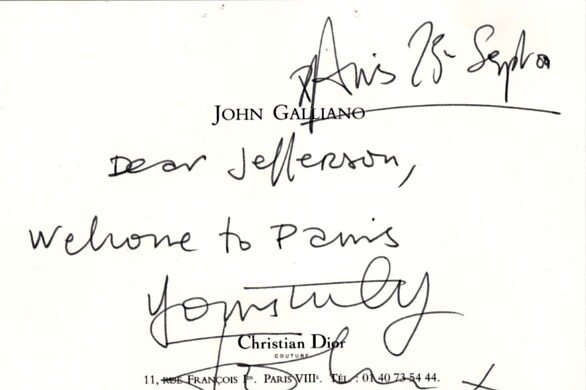 Paris 25 Sept 00
JOHN GALLIANO
Dear Jefferson,
Welcome to Paris
Yours truly
Christian Dior
COUTURE
John x
11, RUE FRANÇOIS 1ER. PARIS VIIIE. TÉL : 01 40 73 54 44.